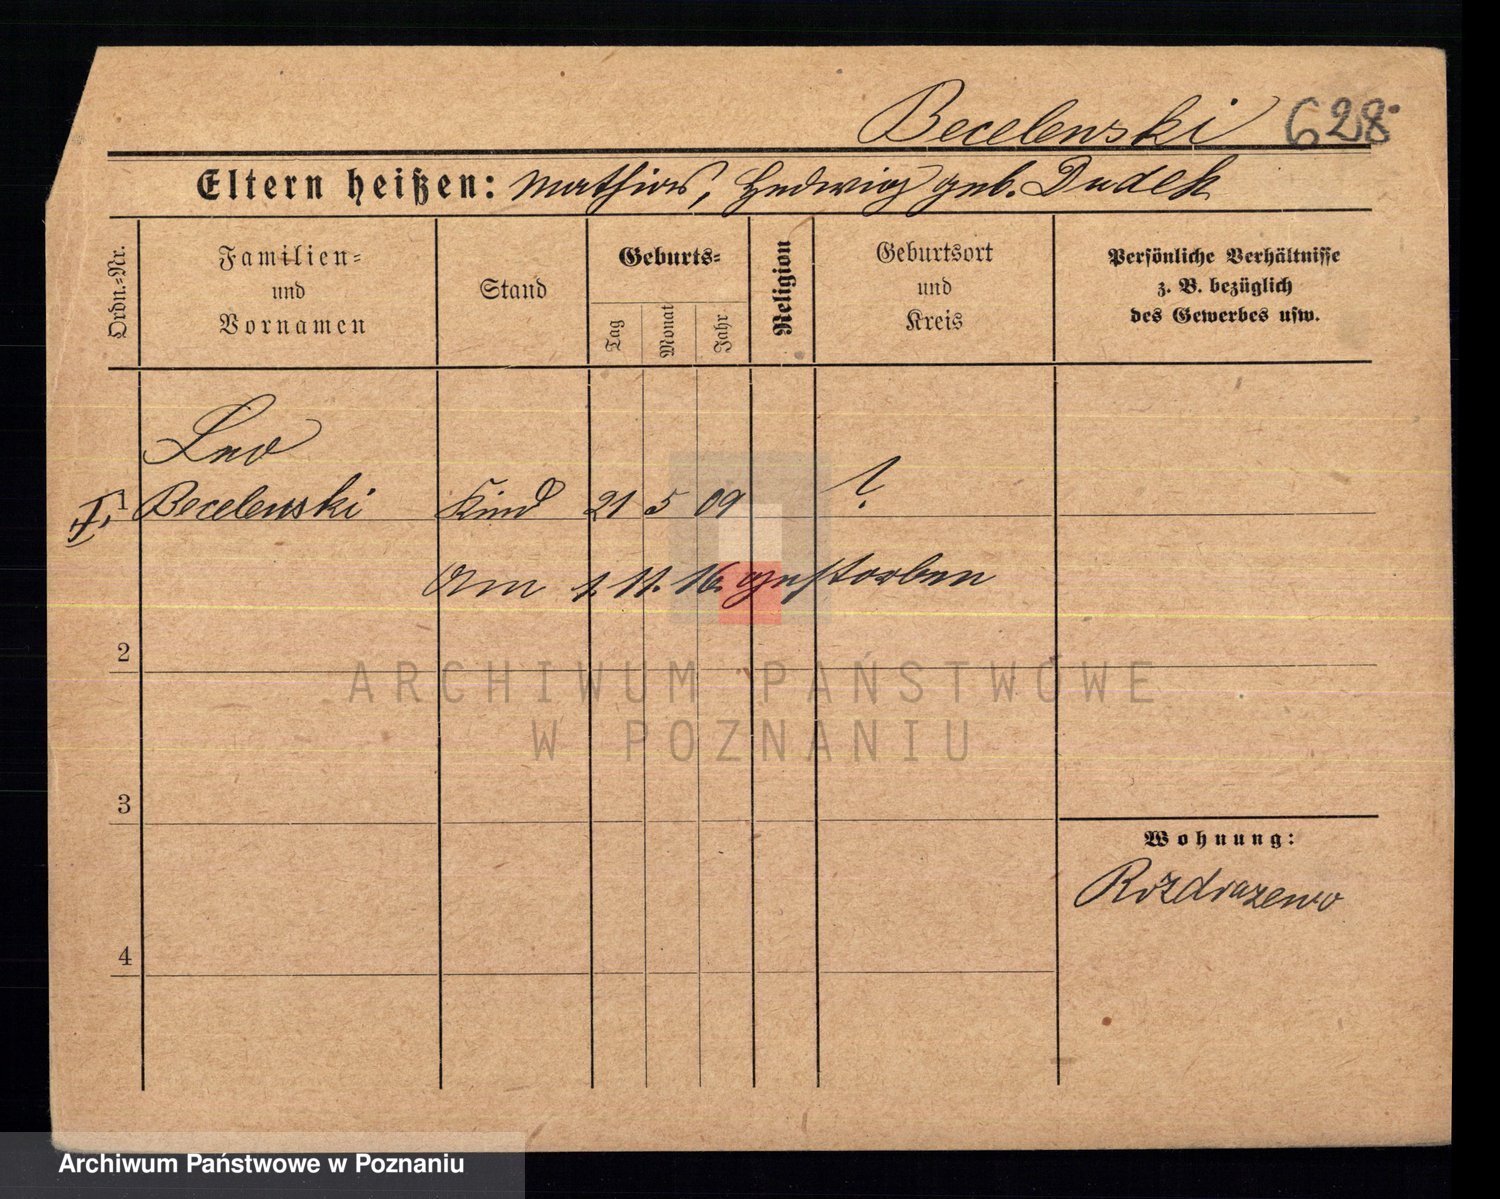 Becelenski 628
Eltern heißen: Mathias, Hedwig geb. Dudek
Ordn.=Nr.
Familien=
und
Vornamen
Stand
Geburts=
Tag
Monat
Jahr
Religion
Geburtsort
und
Kreis
Persönliche Verhältnisse
z. B. bezüglich
des Gewerbes usw.
Leo
Becelenski Kind 21 5 09 ?
Am 1. 11. 16. gestorben
2
3
4
Wohnung:
Rozdrazewo
ARCHIWUM PAŃSTWOWE
W POZNANIU
Archiwum Państwowe w Poznaniu